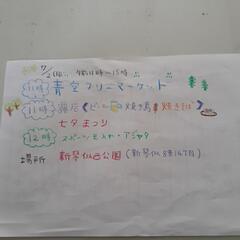 7/2(日) 午前11時〜15時
11時 青空フリーマーケット
11時 露店(ビール 焼き鳥 焼きそば)
七夕まつり
12時 スポーツ
場所 新琴似西公園(新琴似8条14丁目)